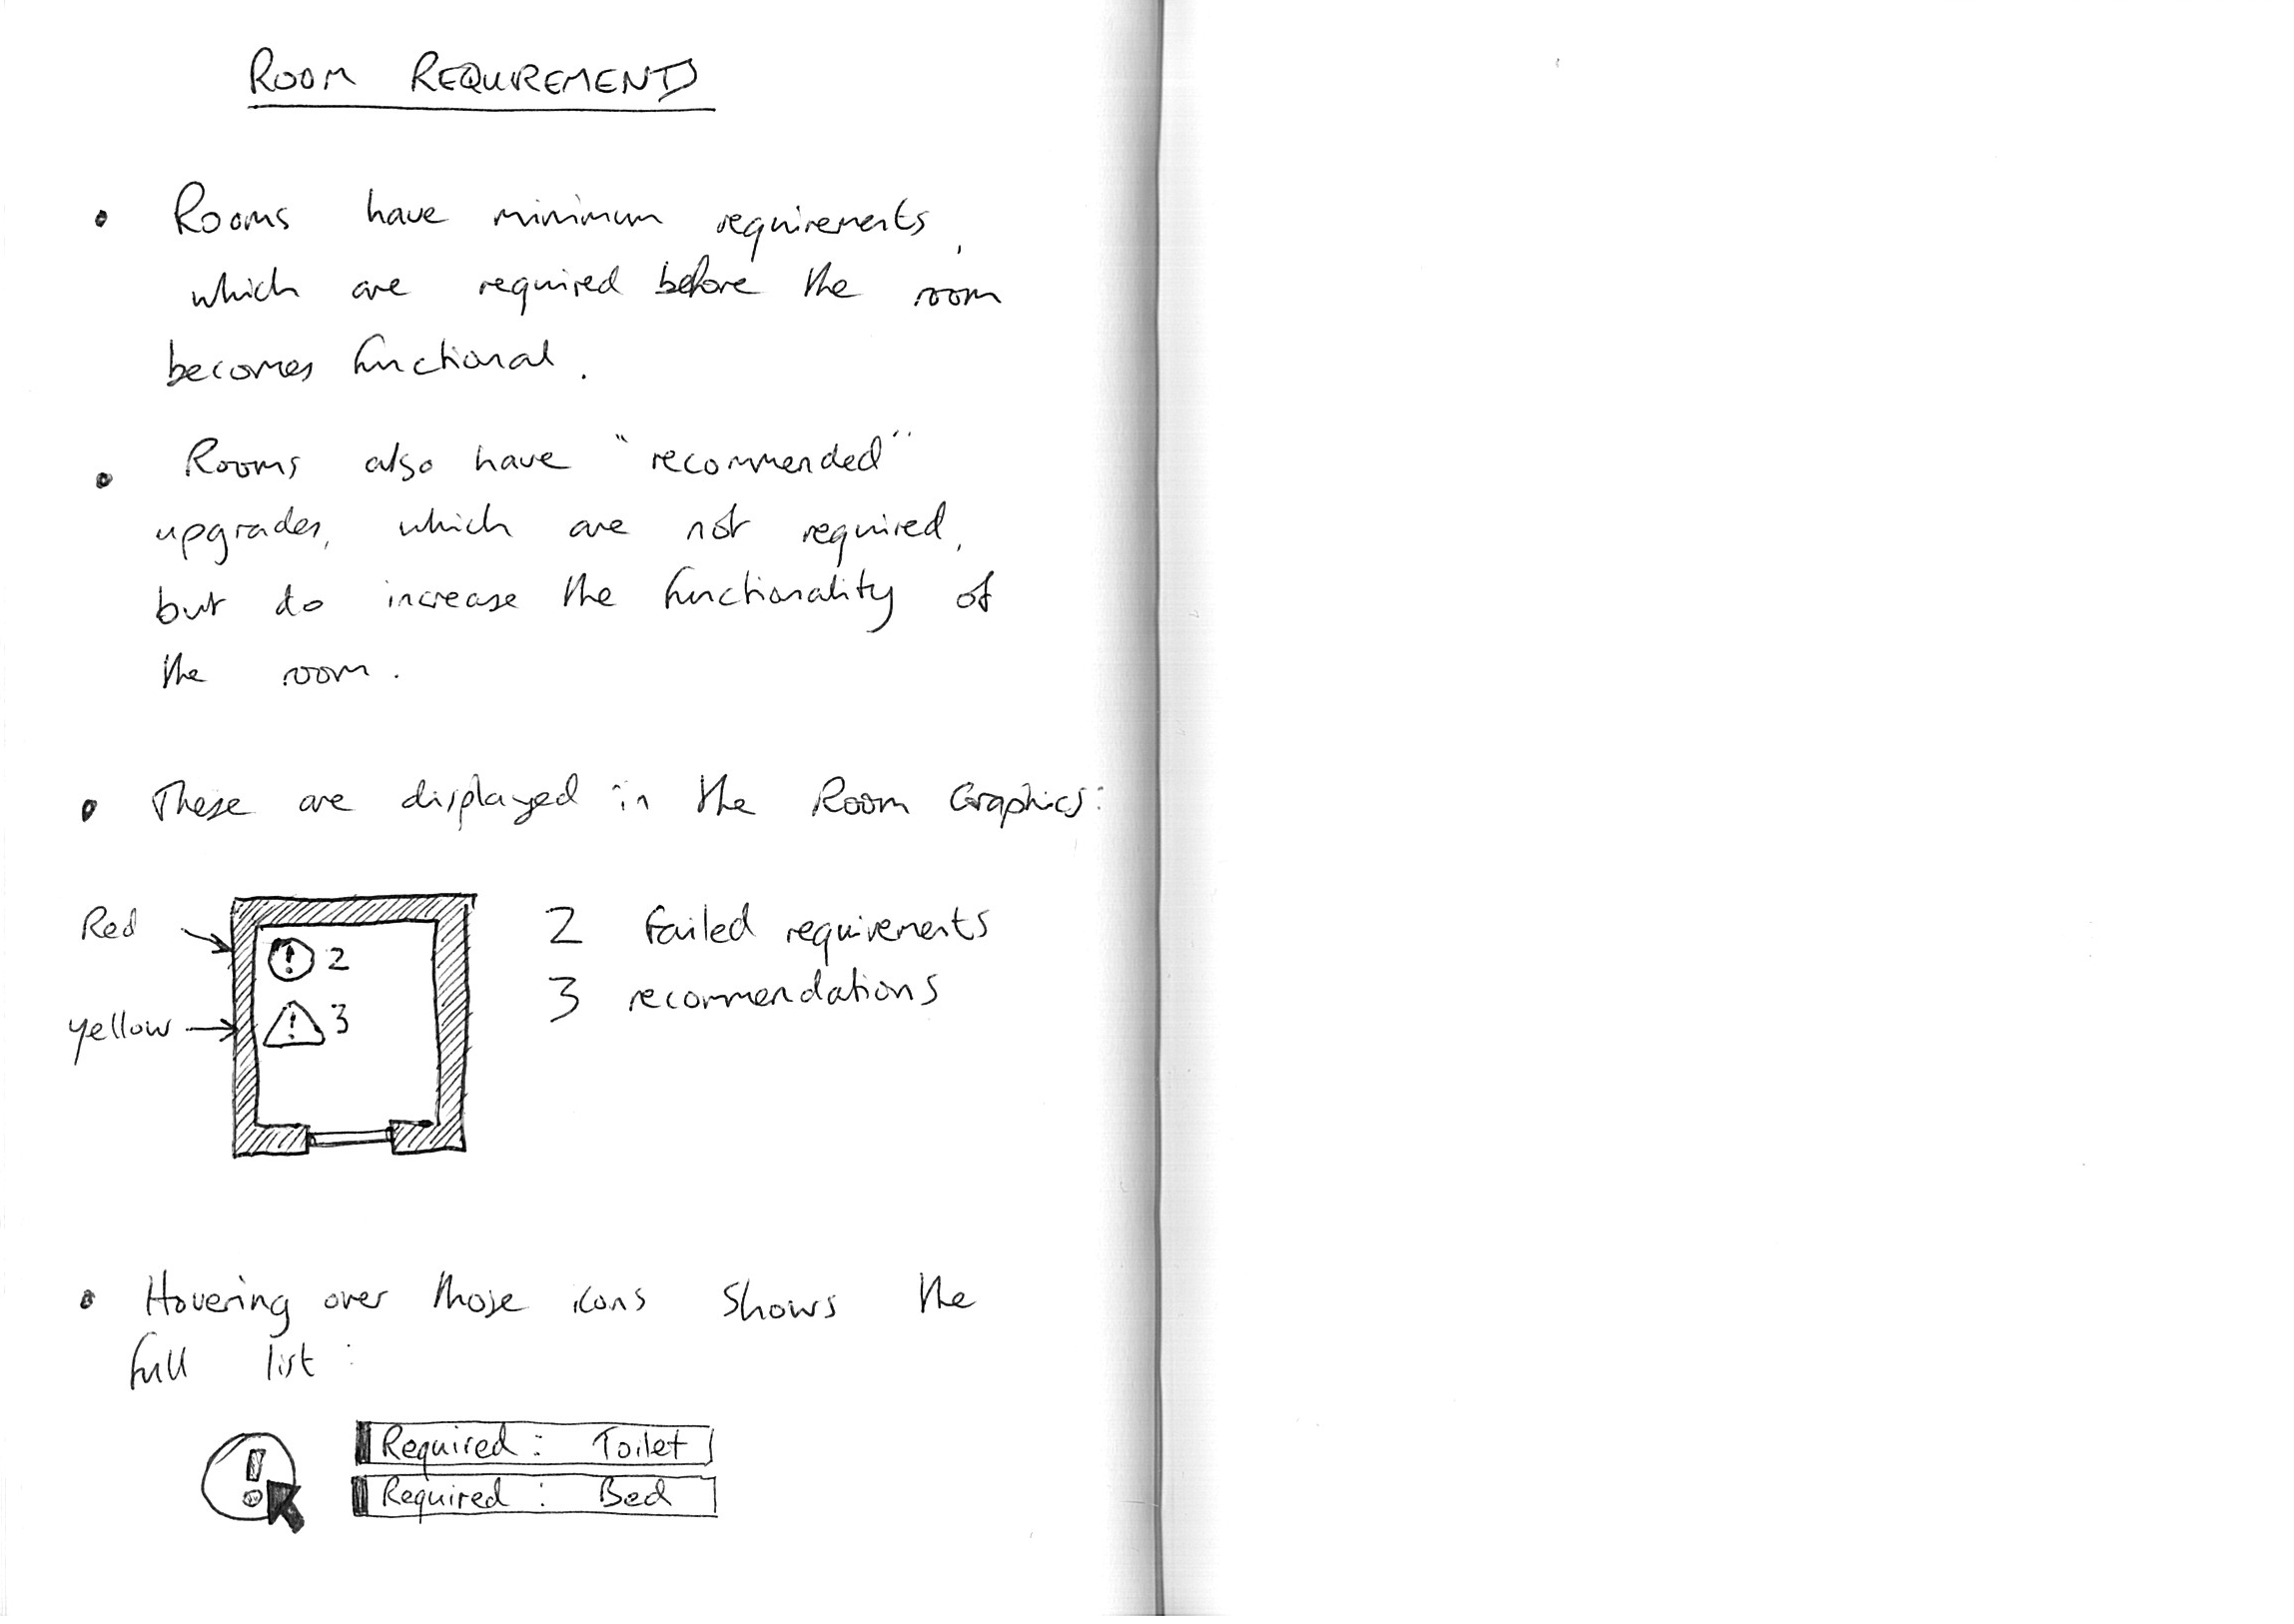 ROOM REQUIREMENTS
• Rooms have minimum requirements,
which are required before the room
becomes functional.
• Rooms also have "recommended"
upgrades, which are not required,
but do increase the functionality of
the room.
• These are displayed in the Room Graphics:
Red
! 2
2 failed requirements
yellow
! 3
3 recommendations
• Hovering over those icons shows the
full list:
!
Required: Toilet
Required: Bed